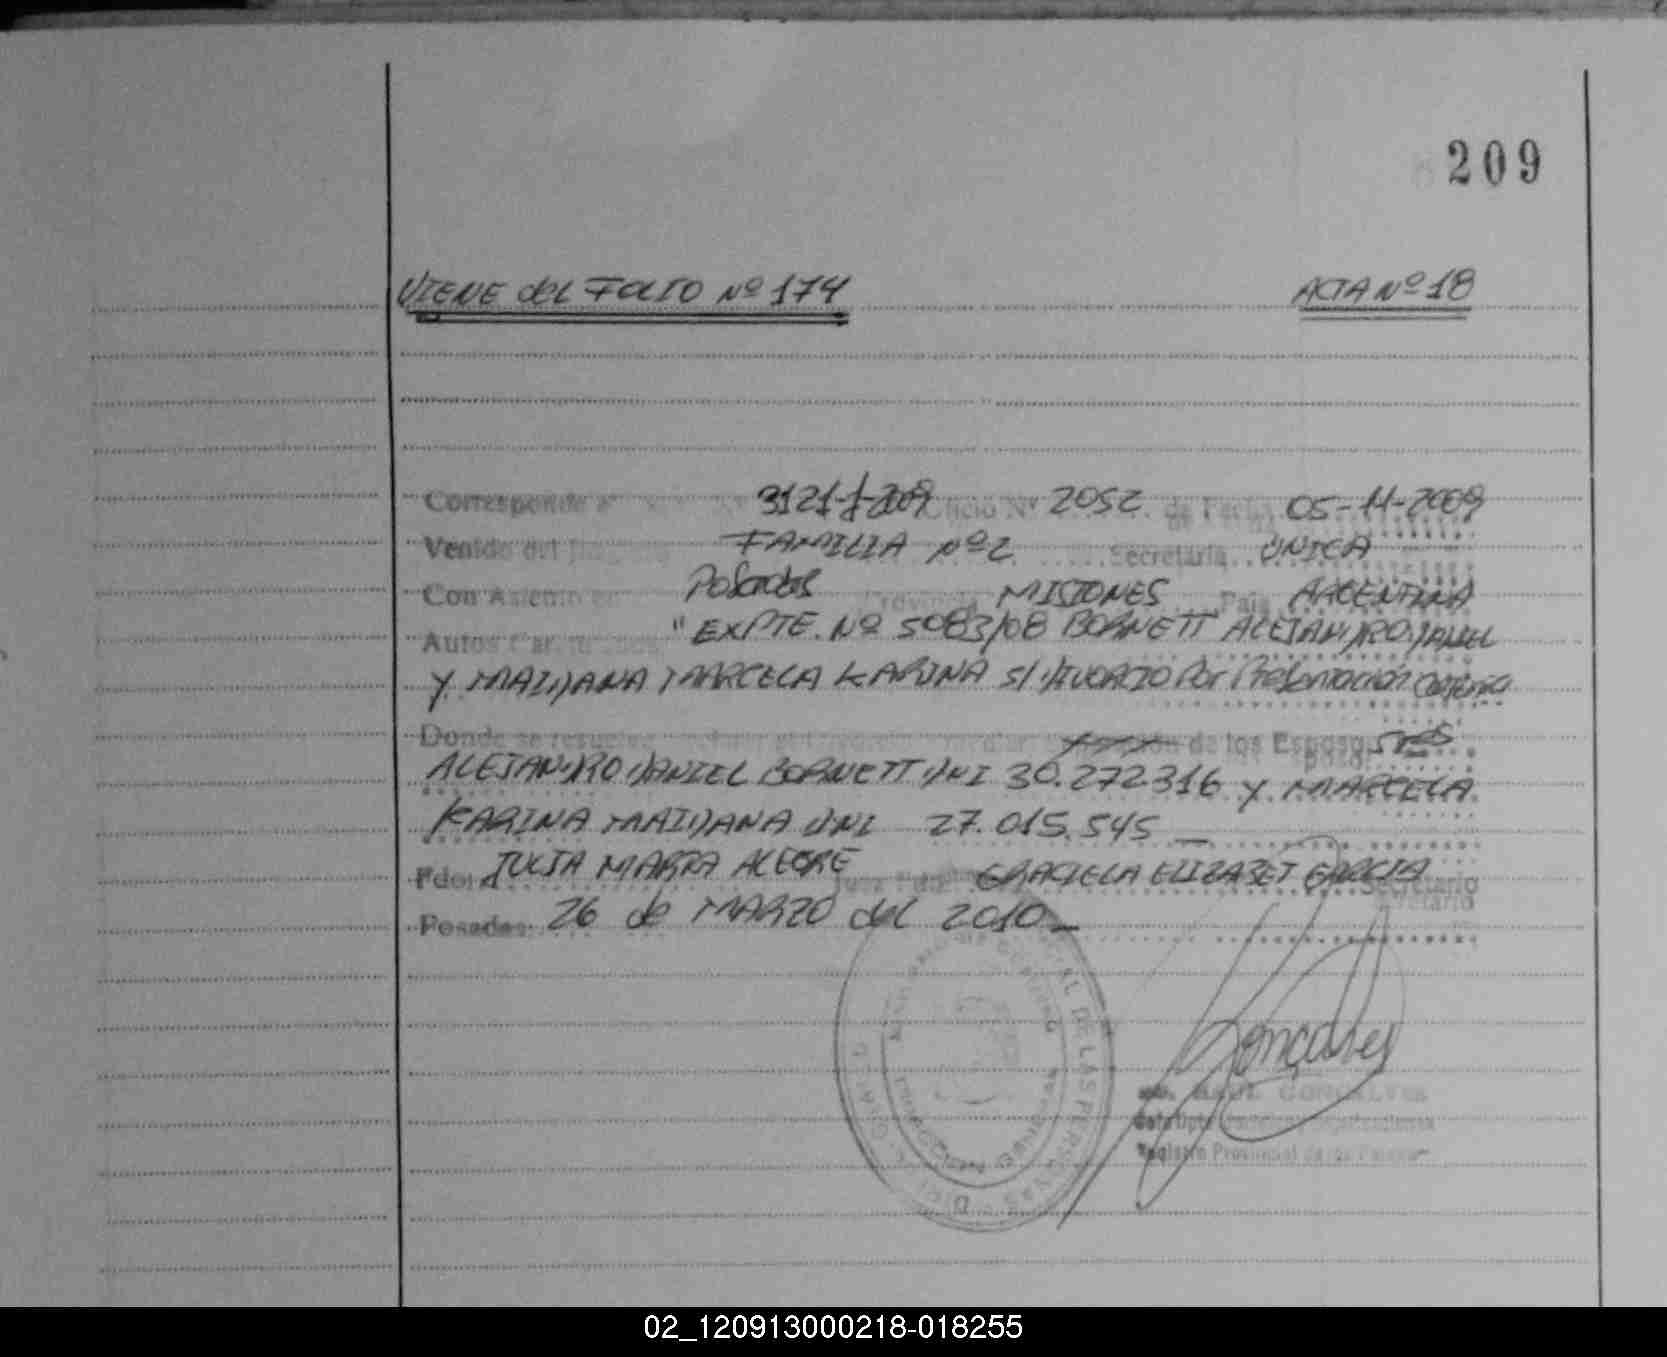 209
VIENE del FOLIO Nº 174 ACTA Nº 18
Corresponde a 3121-J-2009 Oficio Nº 2052 de Fecha 05-11-2009
Venido del FAMILIA Nº 2 Secretaria UNICA
Con Asiento en Posadas Provincia MISIONES País ARGENTINA
Autos "EXPTE. Nº 5083/08 BORNETT ALEJANDRO DANIEL
Y MAIDANA MARCELA KARINA S/ DIVORCIO Por Presentación Conjunta
Donde se resuelve de los Esposos
ALEJANDRO DANIEL BORNETT DNI 30.272316 Y MARCELA
KARINA MAIDANA DNI 27.015.545
Fdo: JULIA MARTA ALEGRE GRACIELA ELIZABET GARCIA Secretario
Posadas: 26 de MARZO del 2010
DE LAS PERSONAS
RAUL GONCALVES
Registro Provincial de las Personas
02_120913000218-018255